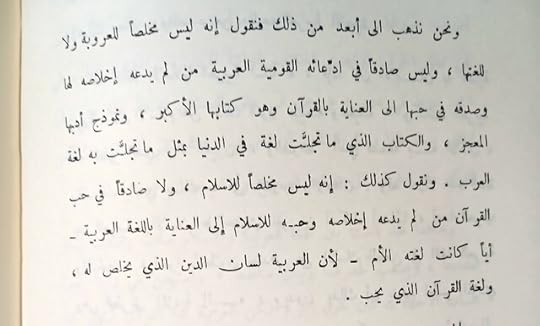 ونحن نذهب الى أبعد من ذلك فنقول إنه ليس مخلصاً للعروبة ولا
للغتها ، وليس صادقاً في ادّعائه القومية العربية من لم يدعه إخلاصه لها
وصدقه في حبها الى العناية بالقرآن وهو كتابها الأكبر ، ونموذج أدبها
المعجز ، والكتاب الذي ما تجلَّت لغة في الدنيا بمثل ما تجلَّت به لغة
العرب . ونقول كذلك : إنه ليس مخلصاً للاسلام ، ولا صادقاً في حب
القرآن من لم يدعه إخلاصه وحبه للاسلام إلى العناية باللغة العربية -
أياً كانت لغته الأم - لأن العربية لسان الدين الذي يخلص له ،
ولغة القرآن الذي يحب .